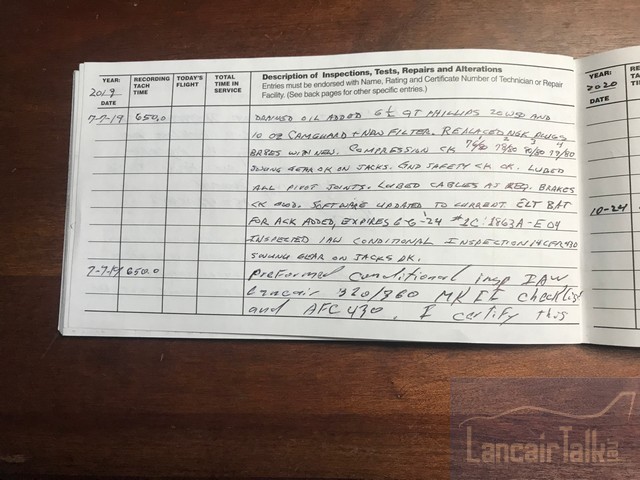 YEAR: 2019 DATE
RECORDING TACH TIME
TODAY'S FLIGHT
TOTAL TIME IN SERVICE
Description of Inspections, Tests, Repairs and Alterations
Entries must be endorsed with Name, Rating and Certificate Number of Technician or Repair
Facility. (See back pages for other specific entries.)
7-7-19 650.0 DRAINED OIL ADDED 6 1/2 QT PHILLIPS 20W50 AND
10 OZ CAMGUARD + NEW FILTER. REPLACED NGK PLUGS
WITH NEW. COMPRESSION CK
SWUNG GEAR OK ON JACKS. GND SAFETY CK OK. LUBED
ALL PIVOT JOINTS. LUBED CABLES AS REQ. BRAKES
CK GOOD. SOFTWARE UPDATED TO CURRENT. ELT BAT
FOR ACK ADDED, EXPIRES 6-6-24
INSPECTED IAW CONDITIONAL INSPECTION 14CFR430
SWUNG GEAR ON JACKS OK.
7-7-19 650.0 preformed conditional insp IAW
Lancair 320/360 MK II checklist
and AFC 430. I certify this
YEAR:
2020
DATE
10-24
LancairTalk